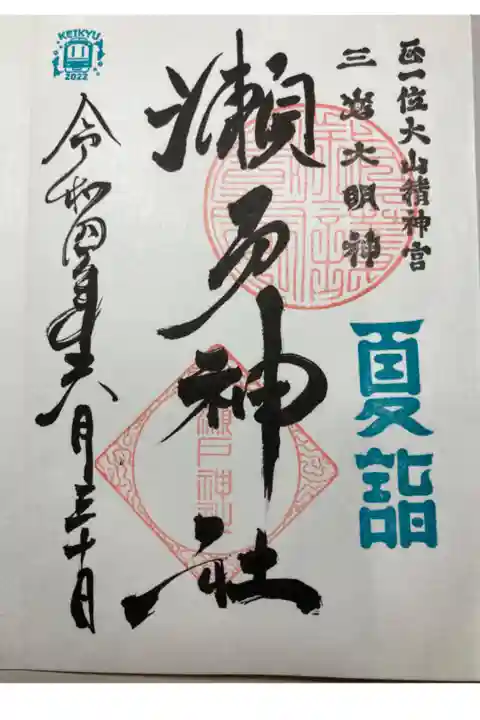 KEIKYU
2022
正一位大山積神宮
三嶋大明神
夏詣
瀬戸神社
瀬戸神社
令和四年六月三十日